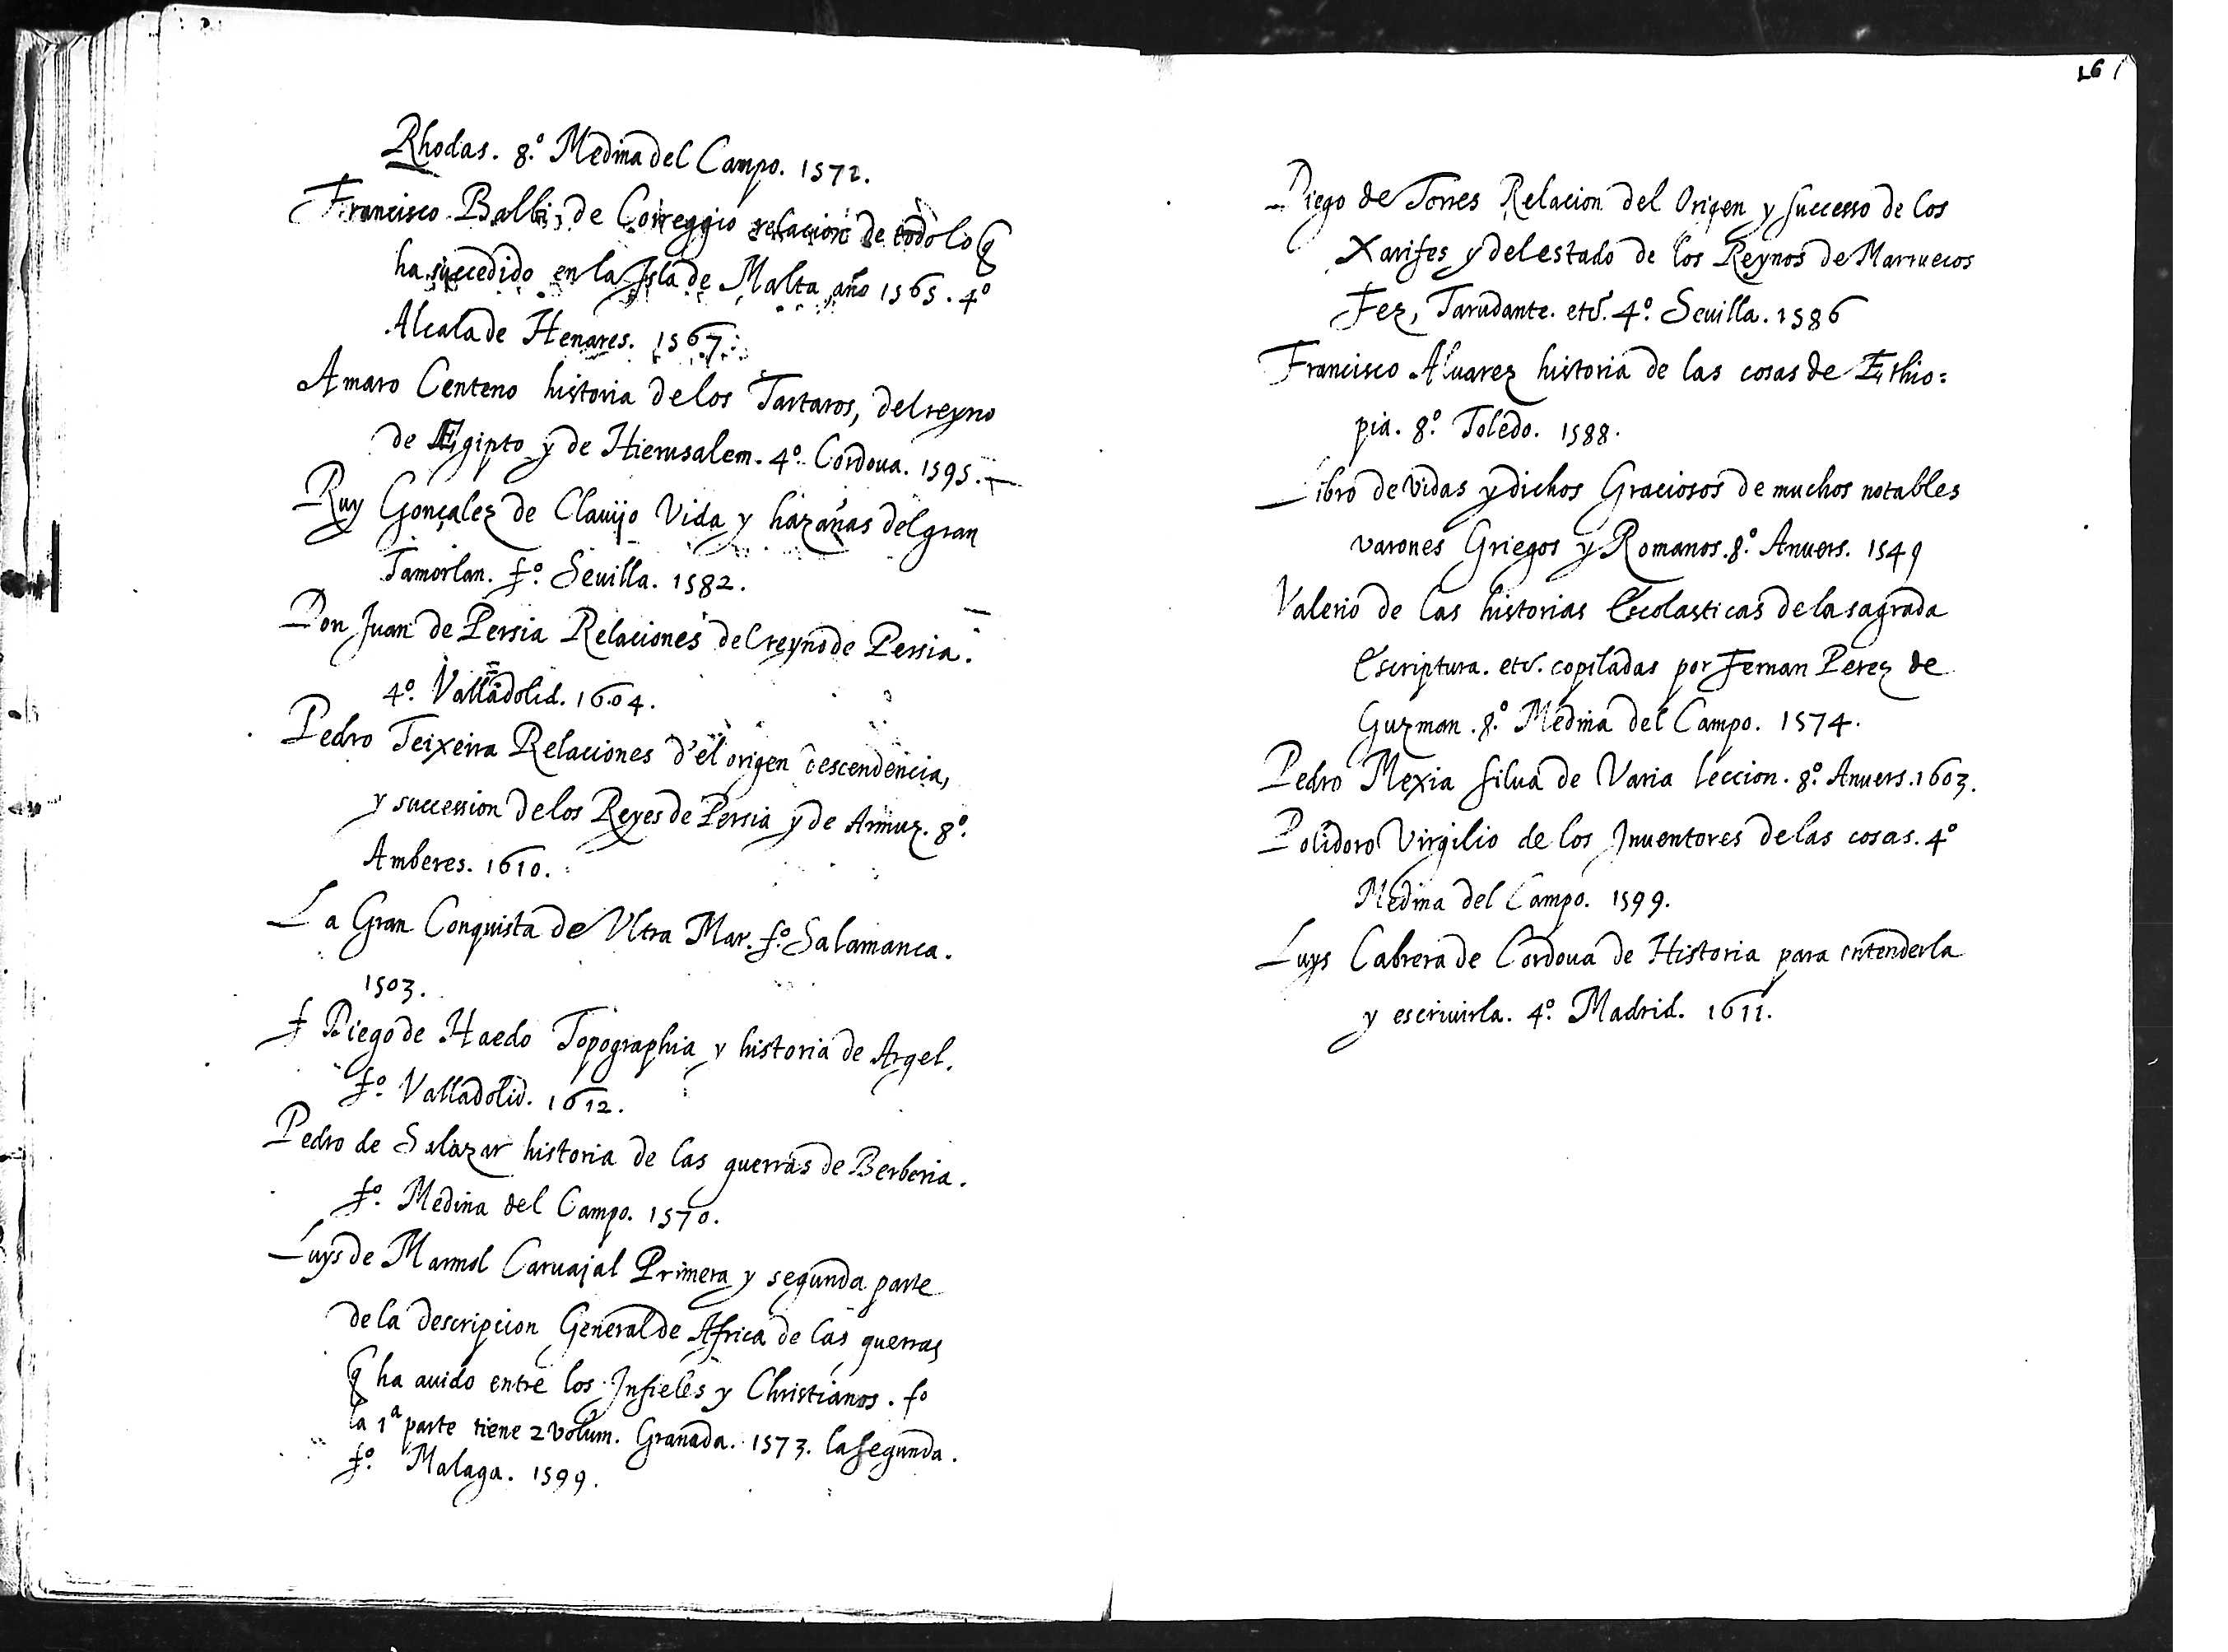 Rhodas. 8.º Medina del Campo. 1572.
Francisco Balbi, de Correggio relacion de todo lo q̃
ha succedido en la Isla de Malta, año 1565. 4º
Alcala de Henares. 1567.
Amaro Centeno historia de los Tartaros, del reyno
de Egipto y de Hierusalem. 4º. Cordoua. 1595.
Ruy Gonçalez de Clauijo Vida y hazañas del gran
Tamorlan. fº. Seuilla. 1582.
Don Juan de Persia Relaciones del reyno de Persia.
4º. Valladolid. 1604.
Pedro Teixeira Relaciones d'el origen descendencia,
y succession de los Reyes de Persia y de Armuz. 8º.
Amberes. 1610.
La Gran Conquista de Vltra Mar. fº. Salamanca.
1503.
f Diego de Haedo Topographia y historia de Argel.
fº. Valladolid. 1612.
Pedro de Salazar historia de las guerras de Berberia.
fº. Medina del Campo. 1570.
Luys de Marmol Caruajal Primera y segunda parte
de la descripcion General de Africa de las guerras
q̃ ha auido entre los Infieles y Christianos. fº
la 1ª parte tiene 2 volum. Granada. 1573. la segunda.
fº. Malaga. 1599.
161
Diego de Torres Relacion del Origen y successo de los
Xarifes y del estado de los Reynos de Marruecos
Fez, Tarudante. etc. 4º. Seuilla. 1586
Francisco Aluarez historia de las cosas de Ethio=
pia. 8º. Toledo. 1588.
Libro de vidas y dichos Graciosos de muchos notables
varones Griegos y Romanos. 8º. Anuers. 1549
Valerio de las historias Escolasticas de la sagrada
Escriptura. etc. copiladas por Fernan Perez de
Guzman. 8º. Medina del Campo. 1574.
Pedro Mexia silua de Varia leccion. 8º. Anuers. 1603.
Polidoro Virgilio de los Inuentores de las cosas. 4º
Medina del Campo. 1599.
Luys Cabrera de Cordoua de Historia para entenderla
y escriuirla. 4º. Madrid. 1611.